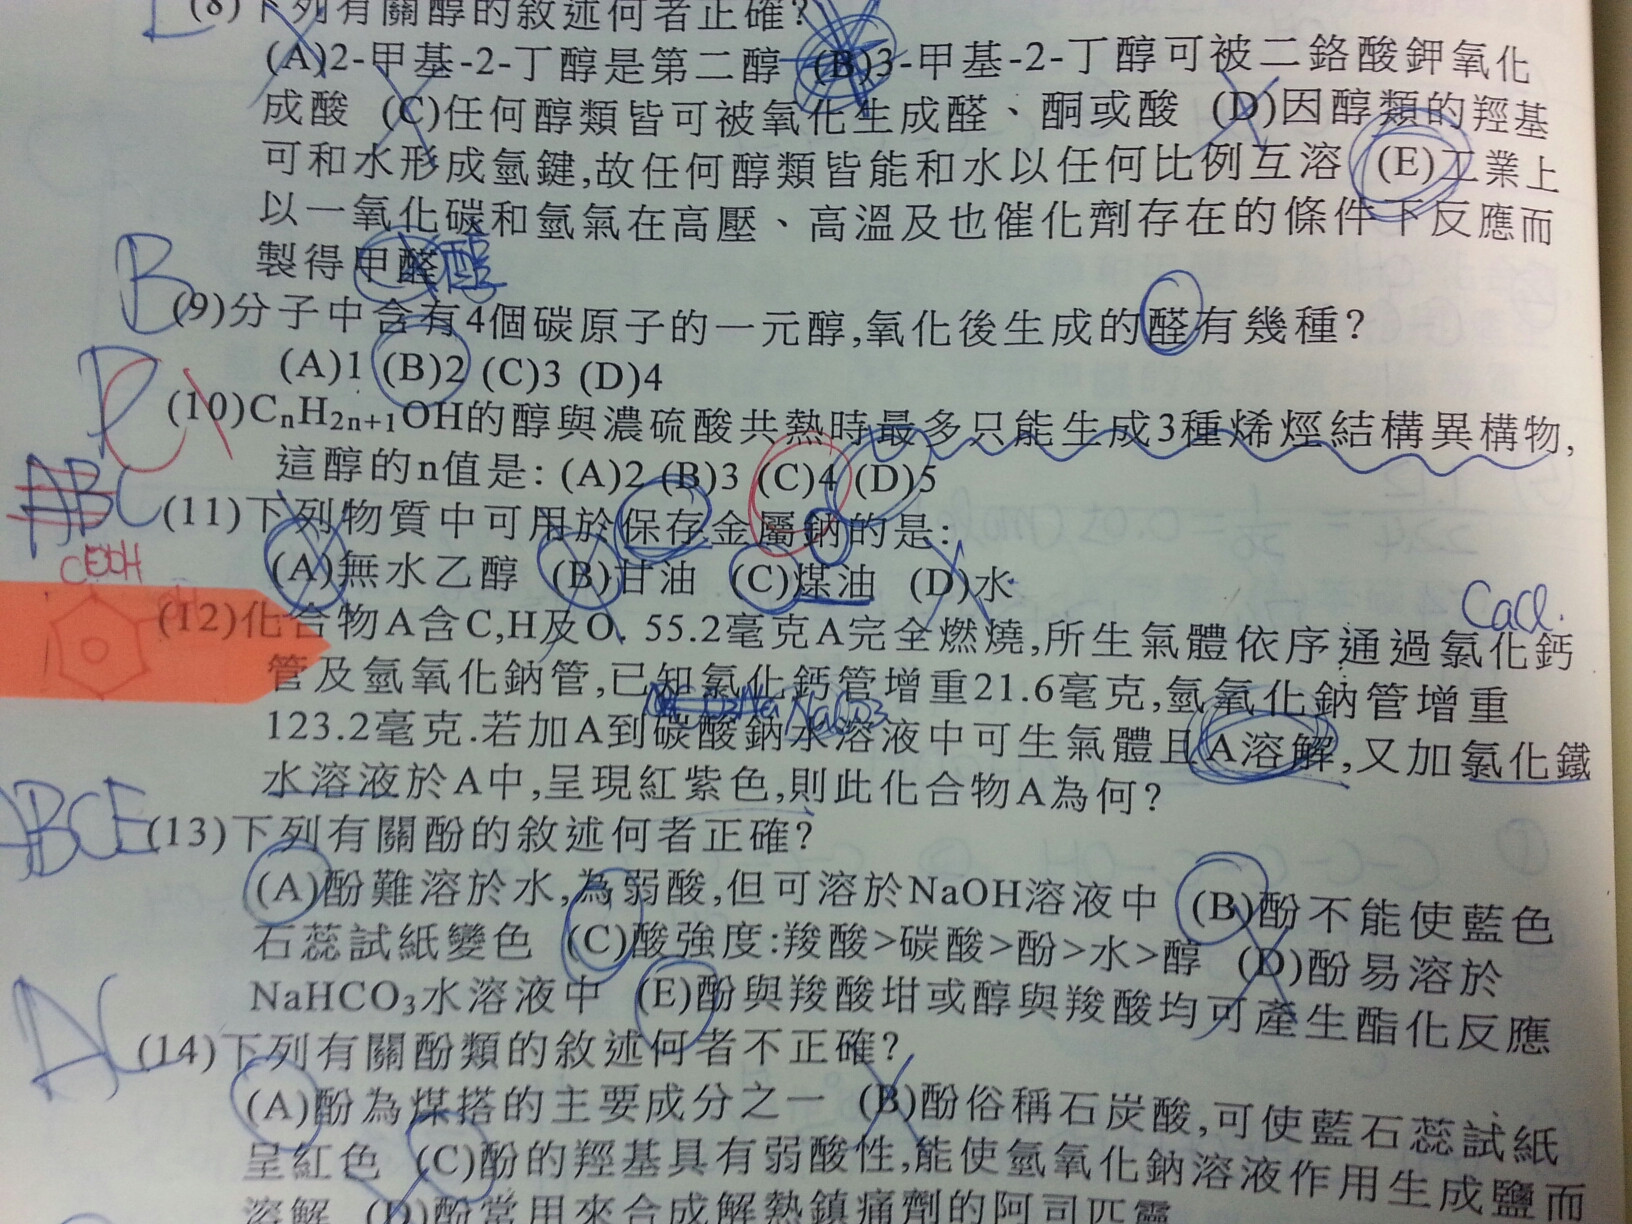 (8)下列有關醇的敘述何者正確?
(A)2-甲基-2-丁醇是第二醇 (B)3-甲基-2-丁醇可被二鉻酸鉀氧化
成酸 (C)任何醇類皆可被氧化生成醛、酮或酸 (D)因醇類的羥基
可和水形成氫鍵,故任何醇類皆能和水以任何比例互溶 (E)工業上
以一氧化碳和氫氣在高壓、高溫及也催化劑存在的條件下反應而
製得甲醛
B
(9)分子中含有4個碳原子的一元醇,氧化後生成的醛有幾種?
(A)1 (B)2 (C)3 (D)4
D
(10)CnH2n+1OH的醇與濃硫酸共熱時最多只能生成3種烯烴結構異構物,
這醇的n值是: (A)2 (B)3 (C)4 (D)5
ABC
(11)下列物質中可用於保存金屬鈉的是:
(A)無水乙醇 (B)甘油 (C)煤油 (D)水
CaCl
(12)化合物A含C,H及O. 55.2毫克A完全燃燒,所生氣體依序通過氯化鈣
管及氫氧化鈉管,已知氯化鈣管增重21.6毫克,氫氧化鈉管增重
Na2CO3
123.2毫克.若加A到碳酸鈉水溶液中可生氣體且A溶解,又加氯化鐵
水溶液於A中,呈現紅紫色,則此化合物A為何?
ABCE
(13)下列有關酚的敘述何者正確?
(A)酚難溶於水,為弱酸,但可溶於NaOH溶液中 (B)酚不能使藍色
石蕊試紙變色 (C)酸強度:羧酸>碳酸>酚>水>醇 (D)酚易溶於
NaHCO3水溶液中 (E)酚與羧酸坩或醇與羧酸均可產生酯化反應
AC
(14)下列有關酚類的敘述何者不正確?
(A)酚為煤搭的主要成分之一 (B)酚俗稱石炭酸,可使藍石蕊試紙
呈紅色 (C)酚的羥基具有弱酸性,能使氫氧化鈉溶液作用生成鹽而
溶解 (D)酚常用來合成解熱鎮痛劑的阿司匹靈